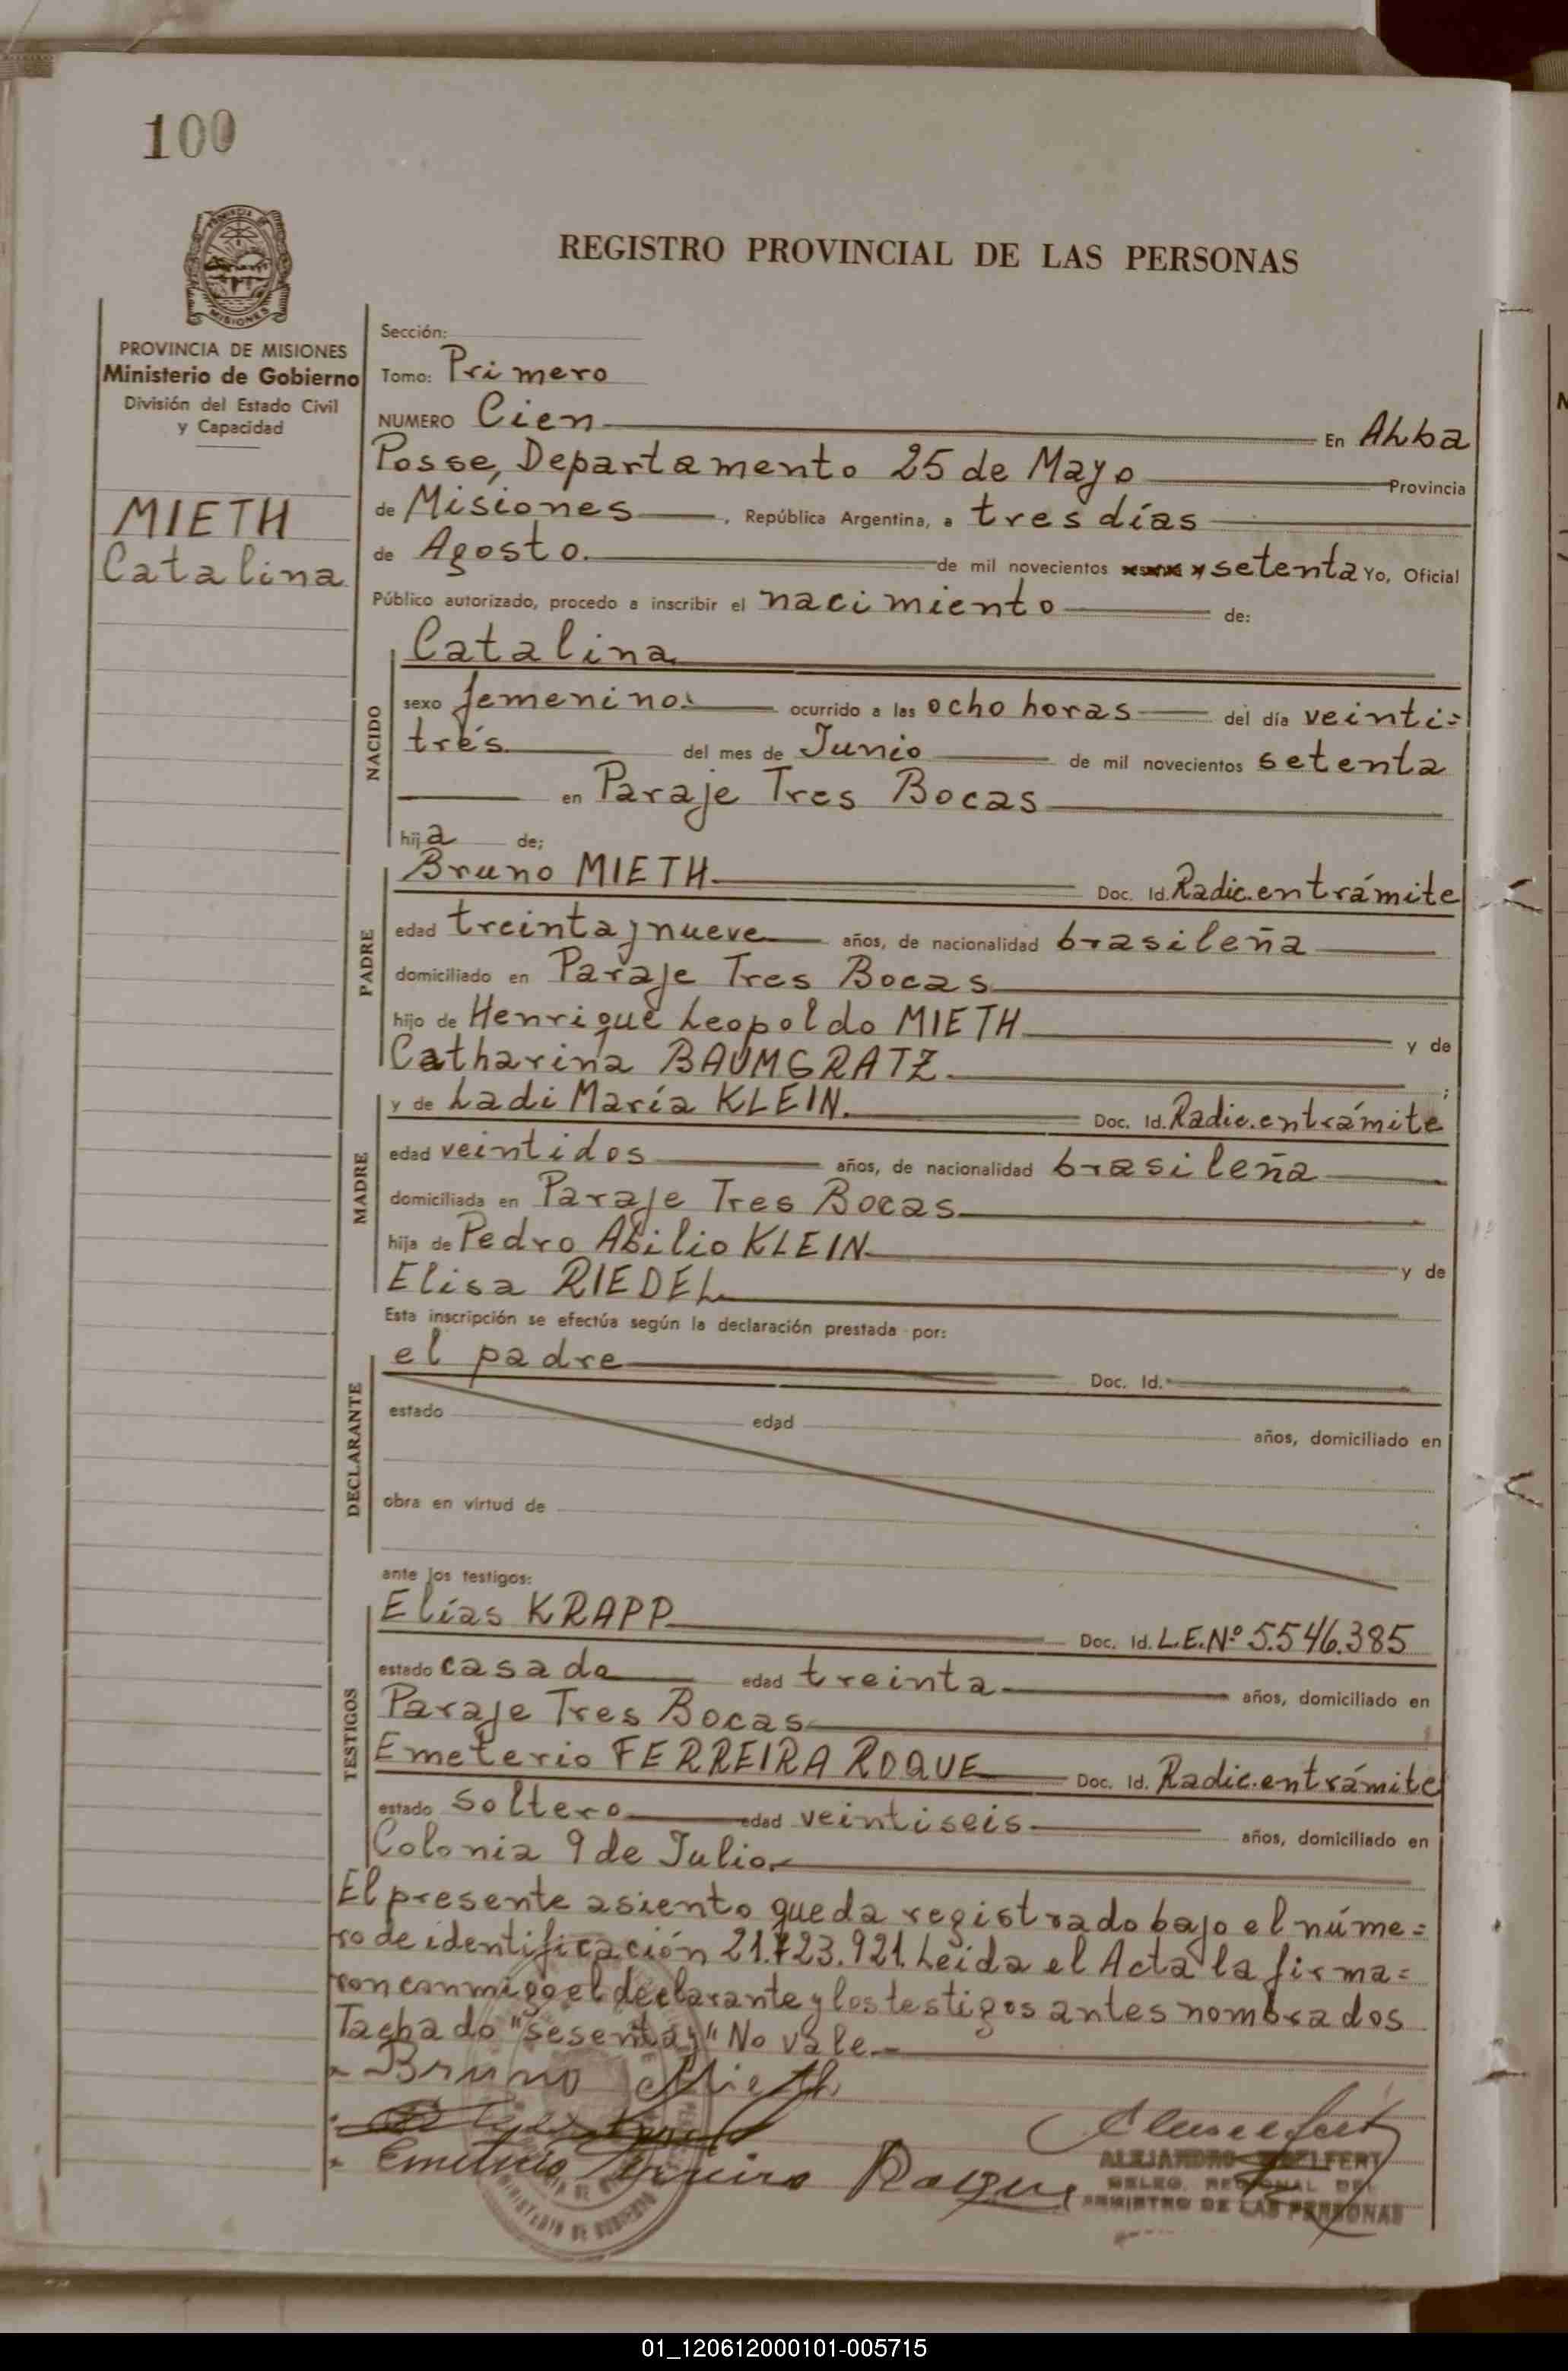 100
REGISTRO PROVINCIAL DE LAS PERSONAS
MISIONES
PROVINCIA DE MISIONES
Ministerio de Gobierno
División del Estado Civil
y Capacidad
MIETH
Catalina
Sección:
Tomo: Primero
NUMERO Cien En Alba
Posse, Departamento 25 de Mayo Provincia
de Misiones, República Argentina, a tres días
de Agosto. de mil novecientos setenta Yo, Oficial
Público autorizado, procedo a inscribir el nacimiento de:
NACIDO
Catalina
sexo femenino. ocurrido a las ocho horas del día veinti=
trés del mes de Junio de mil novecientos setenta
en Paraje Tres Bocas
hija de;
PADRE
Bruno MIETH Doc. Id. Radic. en trámite
edad treinta y nueve años, de nacionalidad brasileña
domiciliado en Paraje Tres Bocas
hijo de Henrique Leopoldo MIETH y de
Catharina BAUMGRATZ ;
MADRE
y de Ladi María KLEIN. Doc. Id. Radic. en trámite
edad veintidos años, de nacionalidad brasileña
domiciliada en Paraje Tres Bocas
hija de Pedro Abilio KLEIN y de
Elisa RIEDEL
Esta inscripción se efectúa según la declaración prestada por:
DECLARANTE
el padre Doc. Id.
estado edad años, domiciliado en
obra en virtud de
ante los testigos:
TESTIGOS
Elías KRAPP Doc. Id. L.E.Nº 5.546.385
estado casado edad treinta años, domiciliado en
Paraje Tres Bocas
Emeterio FERREIRA ROQUE Doc. Id. Radic. en trámite
estado Soltero edad veintiseis años, domiciliado en
Colonia 9 de Julio.
El presente asiento queda registrado bajo el núme=
ro de identificación 21.723.921. Leida el Acta la firma=
ron conmigo el declarante y los testigos antes nombrados
Tachado "sesenta y" No vale.
Bruno Mieth
Emeterio Ferreira Roque
ALEJANDRO
DELEG. REGIONAL DEL
REGISTRO DE LAS PERSONAS
MINISTERIO DE GOBIERNO
01_120612000101-005715